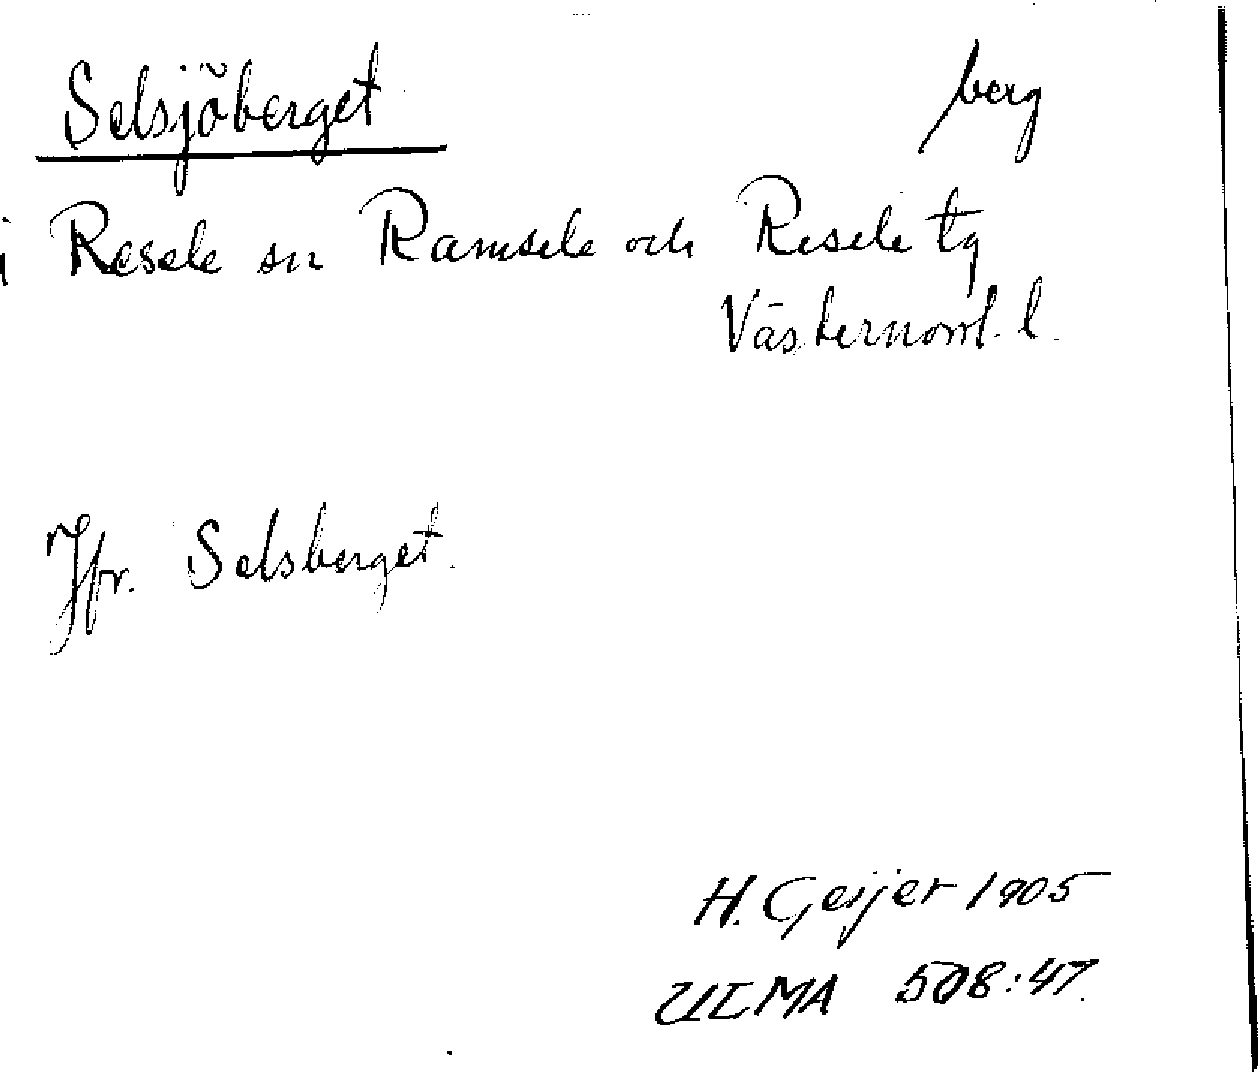 Selsjöberget berg
i Resele sn Ramsele och Resele tg
Västernorrl. l.
Jfr. Selsberget.
H. Geijer 1905
ULMA 508:47.